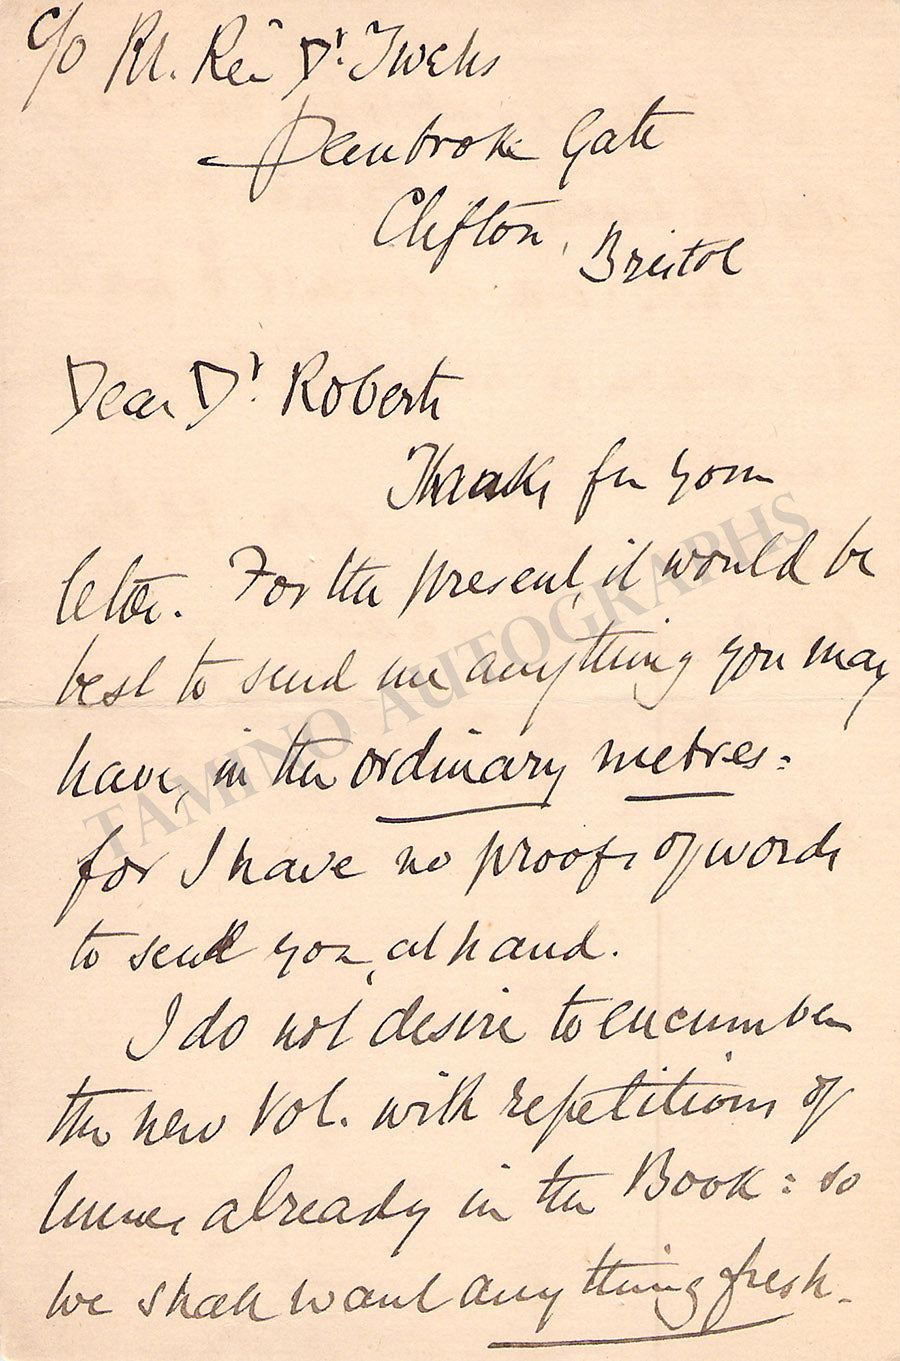 c/o Rt. Rev Dr. Twells
Pembroke Gate
Clifton, Bristol
Dear Dr. Roberts
Thanks for your
letter. For the present, it would be
best to send me anything you may
have, in the ordinary metres:
for I have no proofs of words
to send you, at hand.
I do not desire to encumber
the new Vol. with repetitions of
tunes already in the Book: so
we shall want anything fresh.
TAMINO AUTOGRAPHS